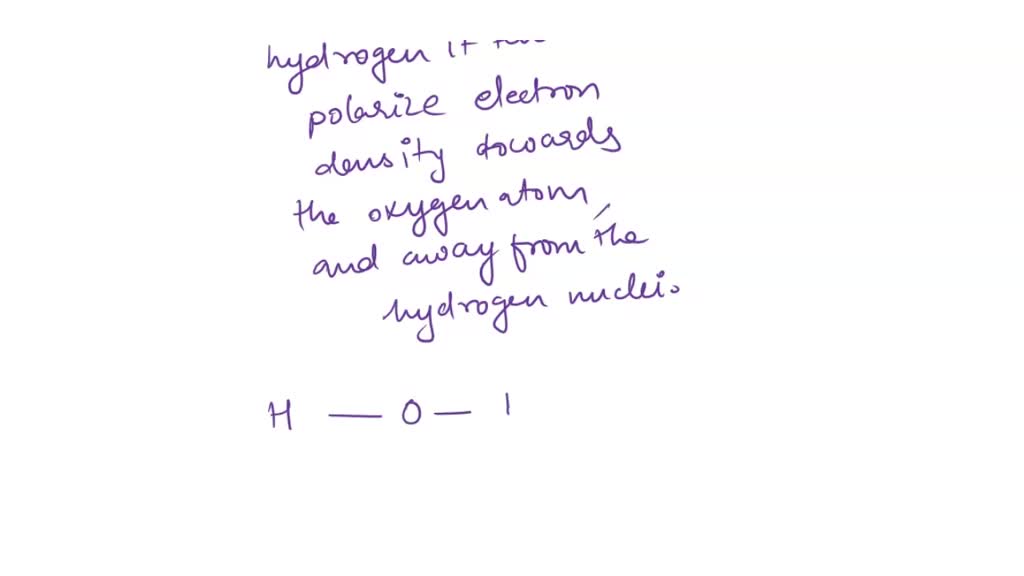 hydrogen it
polarize electron
density towards
the oxygen atom
and away from the
hydrogen nuclei.
H — O — I